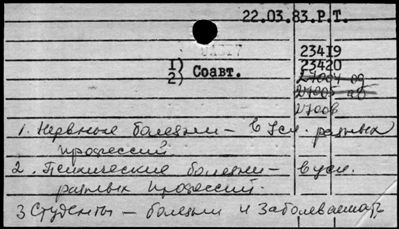 22.03.83.Р.Т.
23419
1) 23420
2) Соавт.
27004 од
27005 аб
27006
1. Нервные болезни – в усл. разных
профессий
2. Психические болезни – в усл.
разных профессий.
3 Студенты – болезни и заболеваемость